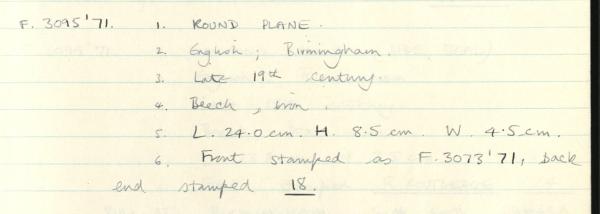 F. 3095'71. 1. ROUND PLANE.
2. English; Birmingham.
3. Late 19th century.
4. Beech, iron.
5. L. 24.0 cm. H. 8.5 cm. W. 4.5 cm.
6. Front stamped as F.3073'71, back
end stamped 18.